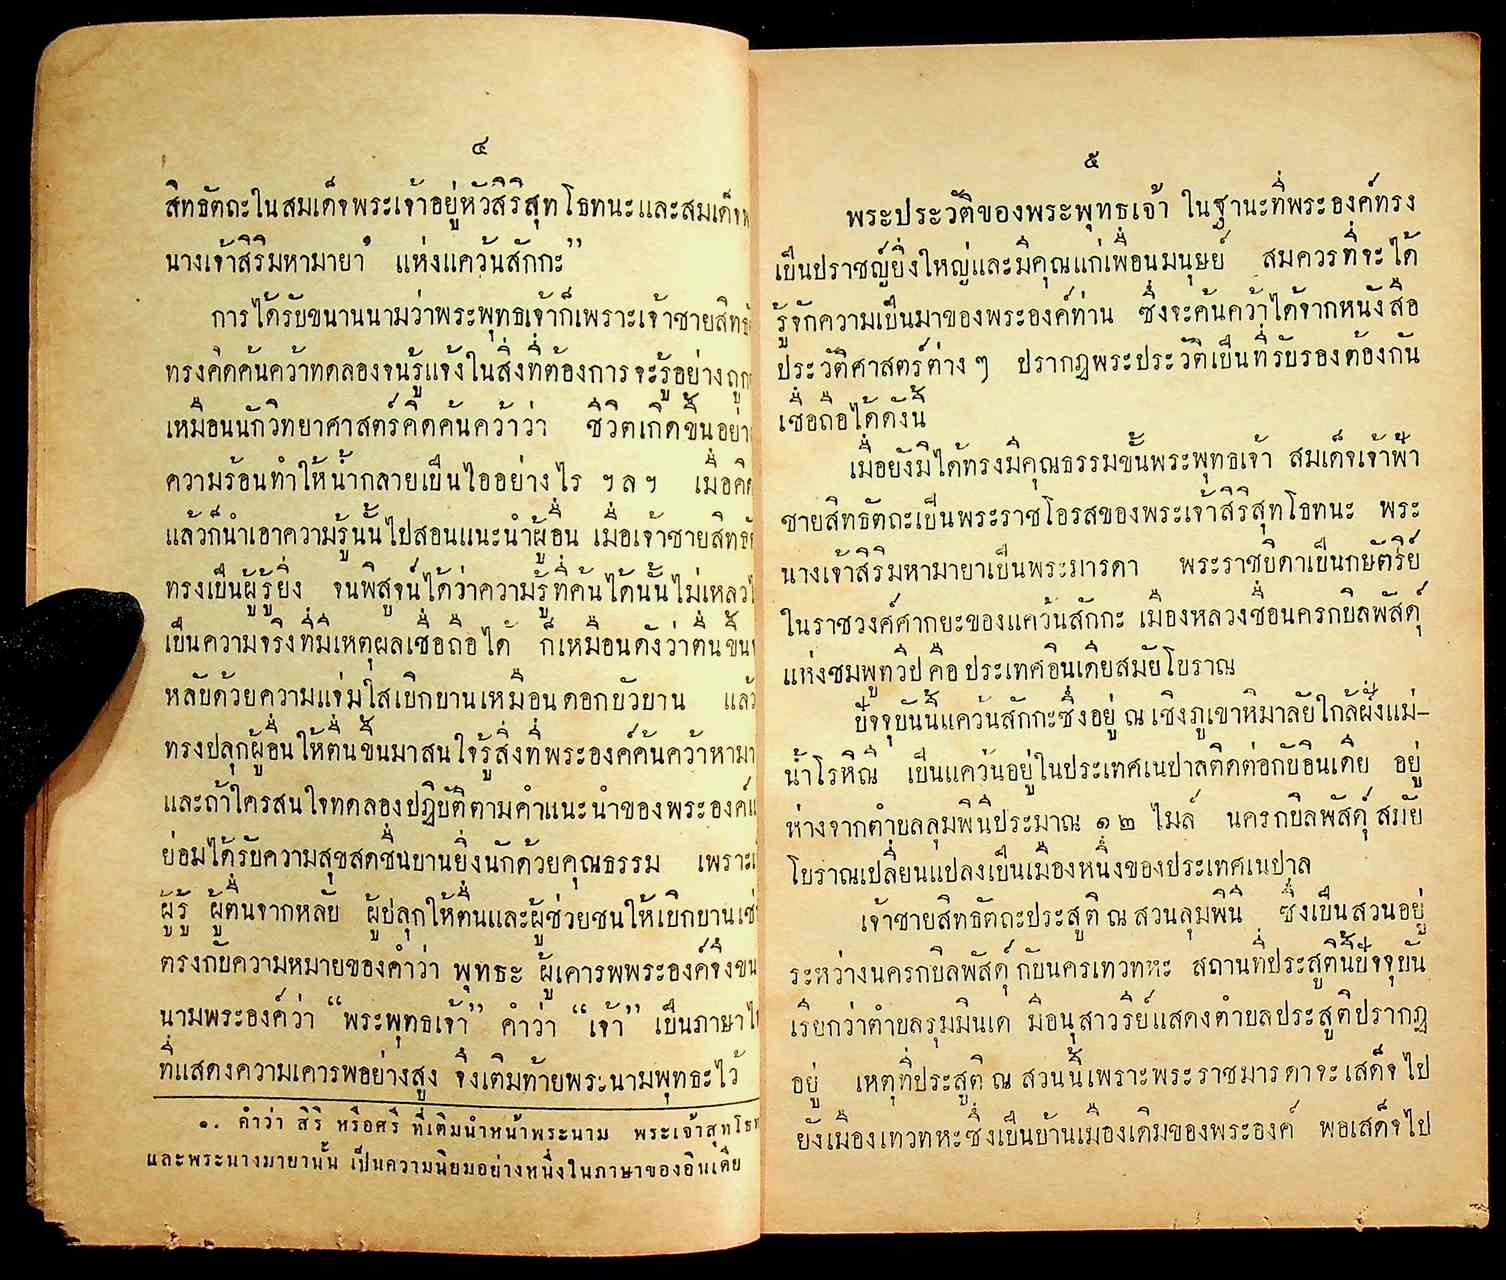 ๔
สิทธัตถะในสมเด็จพระเจ้าอยู่หัวสิริสุทโธทนะและสมเด็จ
นางเจ้าสิริมหามายา๑ แห่งแคว้นสักกะ”
การได้รับขนานนามว่าพระพุทธเจ้าก็เพราะเจ้าชาย
ทรงคิดค้นคว้าทดลองจนรู้แจ้งในสิ่งที่ต้องการจะรู้อย่าง
เหมือนนักวิทยาศาสตร์คิดค้นคว้าว่า ชีวิตเกิดขึ้น
ความร้อนทำให้น้ำกลายเป็นไออย่างไร ฯลฯ เมื่อ
แล้วก็นำเอาความรู้นั้นไปสอนแนะนำผู้อื่น เมื่อเจ้าชาย
ทรงเป็นผู้รู้ยิ่ง จนพิสูจน์ได้ว่าความรู้ที่ค้นได้นั้นไม่
เป็นความจริงที่มีเหตุผลเชื่อถือได้ ก็เหมือนดังว่าตื่นขึ้น
หลับด้วยความแจ่มใสเบิกบานเหมือนดอกบัวบาน
ทรงปลุกผู้อื่นให้ตื่นขึ้นมาสนใจรู้สิ่งที่พระองค์ค้นคว้าหามา
และถ้าใครสนใจทดลองปฏิบัติตามคำแนะนำของพระองค์
ย่อมได้รับความสุขสดชื่นบานยิ่งนักด้วยคุณธรรม
ผู้รู้ ผู้ตื่นจากหลับ ผู้ปลุกให้ตื่นและผู้ช่วยชนให้เบิกบาน
ตรงกับความหมายของคำว่า พุทธะ ผู้เคารพพระองค์จึง
นามพระองค์ว่า “พระพุทธเจ้า” คำว่า “เจ้า” เป็นภาษา
ที่แสดงความเคารพอย่างสูง จึงเติมท้ายพระนามพุทธะไว้
๑. คำว่า สิริ หรือศรี ที่เติมนำหน้าพระนาม
และพระนางมายานั้น เป็นความนิยมอย่างหนึ่งในภาษาของอินเดีย
๕
พระประวัติของพระพุทธเจ้า ในฐานะที่พระองค์ทรง
เป็นปราชญ์ยิ่งใหญ่และมีคุณแก่เพื่อนมนุษย์ สมควรที่จะได้
รู้จักความเป็นมาของพระองค์ท่าน ซึ่งจะค้นคว้าได้จากหนังสือ
ประวัติศาสตร์ต่างๆ ปรากฏพระประวัติเป็นที่รับรองต้องกัน
เชื่อถือได้ดังนี้
เมื่อยังมิได้ทรงมีคุณธรรมขั้นพระพุทธเจ้า สมเด็จเจ้าฟ้า
ชายสิทธัตถะเป็นพระราชโอรสของพระเจ้าสิริสุทโธทนะ พระ
นางเจ้าสิริมหามายาเป็นพระมารดา พระราชบิดาเป็นกษัตริย์
ในราชวงศ์ศากยะของแคว้นสักกะ เมืองหลวงชื่อนครกบิลพัสดุ์
แห่งชมพูทวีป คือ ประเทศอินเดียสมัยโบราณ
ปัจจุบันนี้แคว้นสักกะซึ่งอยู่ ณ เชิงภูเขาหิมาลัยใกล้ฝั่งแม่-
น้ำโรหิณี เป็นแคว้นอยู่ในประเทศเนปาลติดต่อกับอินเดีย อยู่
ห่างจากตำบลลุมพินีประมาณ ๑๒ ไมล์ นครกบิลพัสดุ์ สมัย
โบราณเปลี่ยนแปลงเป็นเมืองหนึ่งของประเทศเนปาล
เจ้าชายสิทธัตถะประสูติ ณ สวนลุมพินี ซึ่งเป็นสวนอยู่
ระหว่างนครกบิลพัสดุ์ กับนครเทวทหะ สถานที่ประสูตินี้ปัจจุบัน
เรียกว่าตำบลรุมมินเด มีอนุสาวรีย์แสดงตำบลประสูติปรากฏ
อยู่ เหตุที่ประสูติ ณ สวนนี้เพราะพระราชมารดาจะเสด็จไป
ยังเมืองเทวทหะซึ่งเป็นบ้านเมืองเดิมของพระองค์ พอเสด็จไป